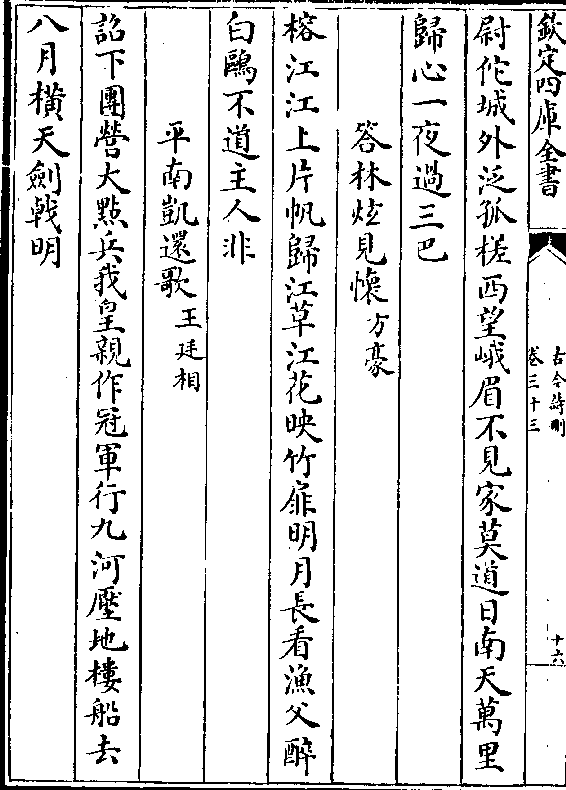 欽定四庫全書
古今詩刪
卷三十三
十六
尉佗城外泛孤槎西望峨眉不見家莫道日南天萬里
歸心一夜過三巴
答林炫見懷方豪
榕江江上片帆歸江草江花映竹扉明月長看漁父醉
白鷗不道主人非
平南凱還歌王廷相
詔下團營大點兵我皇親作冠軍行九河壓地樓船去
八月橫天劍戟明